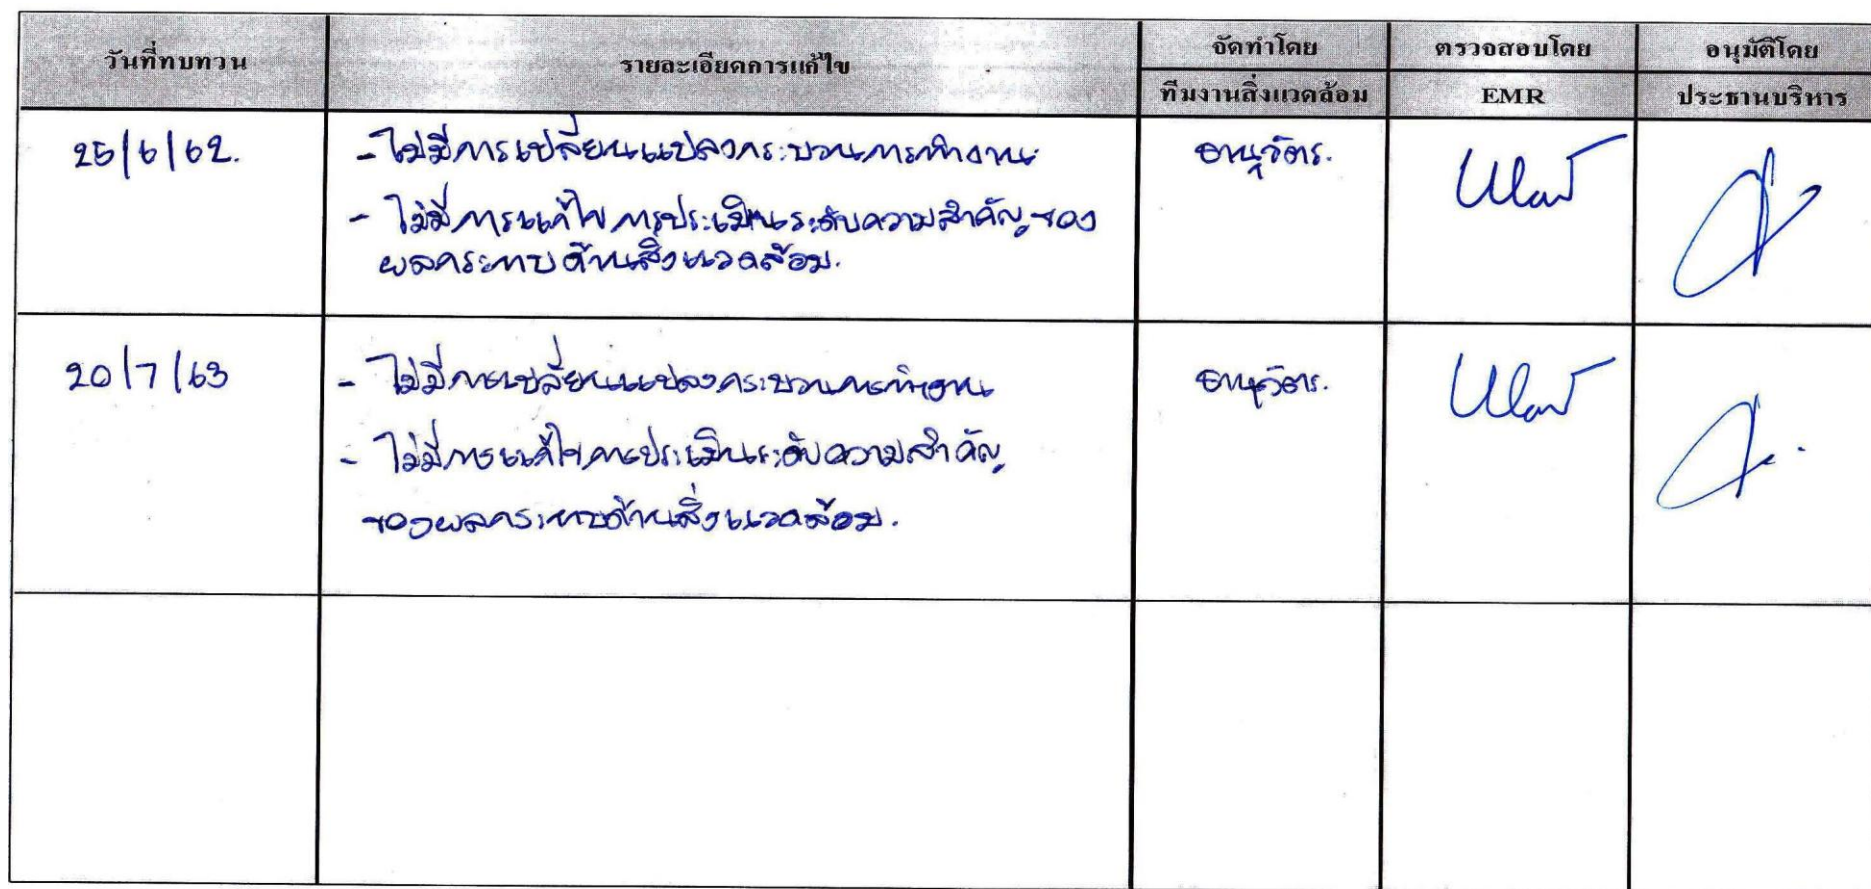 วันที่ทบทวน รายละเอียดการแก้ไข จัดทำโดย ตรวจสอบโดย อนุมัติโดย
ทีมงานสิ่งแวดล้อม EMR ประธานบริหาร
25/6/62. - ไม่มีการเปลี่ยนแปลงกระบวนการทำงาน อานุวัตร.
- ไม่มีการแก้ไขการประเมินระดับความสำคัญของ
ผลกระทบด้านสิ่งแวดล้อม.
20/7/63 - ไม่มีการเปลี่ยนแปลงกระบวนการทำงาน อานุวัตร.
- ไม่มีการแก้ไขการประเมินระดับความสำคัญ
ของผลกระทบด้านสิ่งแวดล้อม.